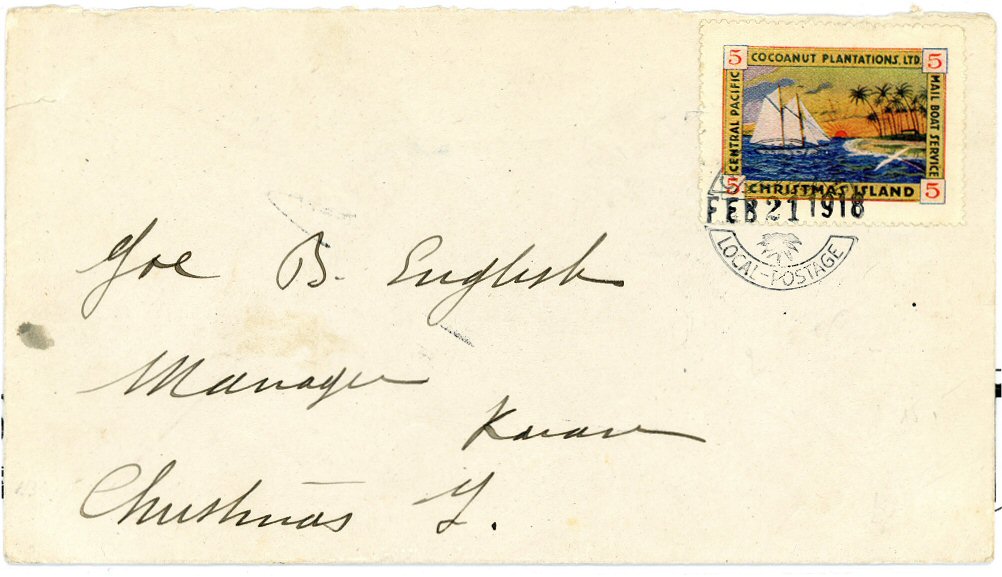 5 COCOANUT PLANTATIONS, LTD. 5
CENTRAL PACIFIC
MAIL BOAT SERVICE
5 CHRISTMAS ISLAND 5
FEB 21 1918
LOCAL-POSTAGE
Joe B. English
Manager
Christmas I.